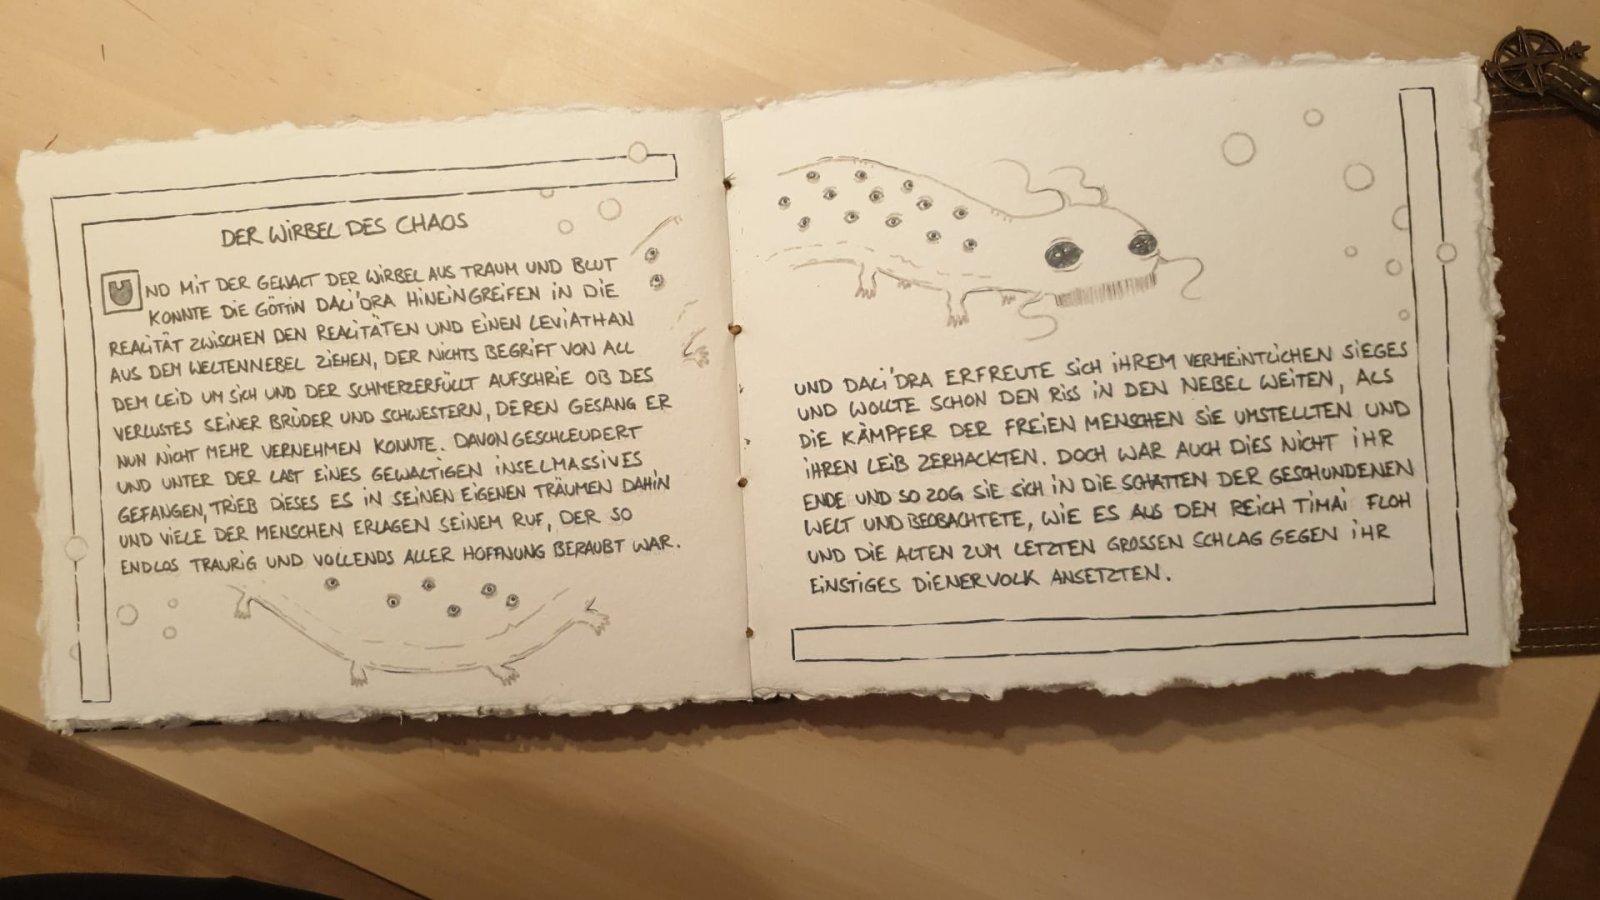 DER WIRBEL DES CHAOS
UND MIT DER GEWALT DER WIRBEL AUS TRAUM UND BLUT
KONNTE DIE GÖTTIN DALI'DRA HINEINGREIFEN IN DIE
REALITÄT ZWISCHEN DEN REALITÄTEN UND EINEN LEVIATHAN
AUS DEM WELTENNEBEL ZIEHEN, DER NICHTS BEGRIFF VON ALL
DEM LEID UM SICH UND DER SCHMERZERFÜLLT AUFSCHRIE OB DES
VERLUSTES SEINER BRÜDER UND SCHWESTERN, DEREN GESANG ER
NUN NICHT MEHR VERNEHMEN KONNTE. DAVONGESCHLEUDERT
UND UNTER DER LAST EINES GEWALTIGEN INSELMASSIVES
GEFANGEN, TRIEB DIESES ES IN SEINEN EIGENEN TRÄUMEN DAHIN
UND VIELE DER MENSCHEN ERLAGEN SEINEM RUF, DER SO
ENDLOS TRAURIG UND VOLLENDS ALLER HOFFNUNG BERAUBT WAR.
UND DALI'DRA ERFREUTE SICH IHREM VERMEINTLICHEN SIEGES
UND WOLLTE SCHON DEN RISS IN DEN NEBEL WEITEN, ALS
DIE KÄMPFER DER FREIEN MENSCHEN SIE UMSTELLTEN UND
IHREN LEIB ZERHACKTEN. DOCH WAR AUCH DIES NICHT IHR
ENDE UND SO ZOG SIE SICH IN DIE SCHATTEN DER GESCHUNDENEN
WELT UND BEOBACHTETE, WIE ES AUS DEM REICH TIMAI FLOH
UND DIE ALTEN ZUM LETZTEN GROSSEN SCHLAG GEGEN IHR
EINSTIGES DIENERVOLK ANSETZTEN.